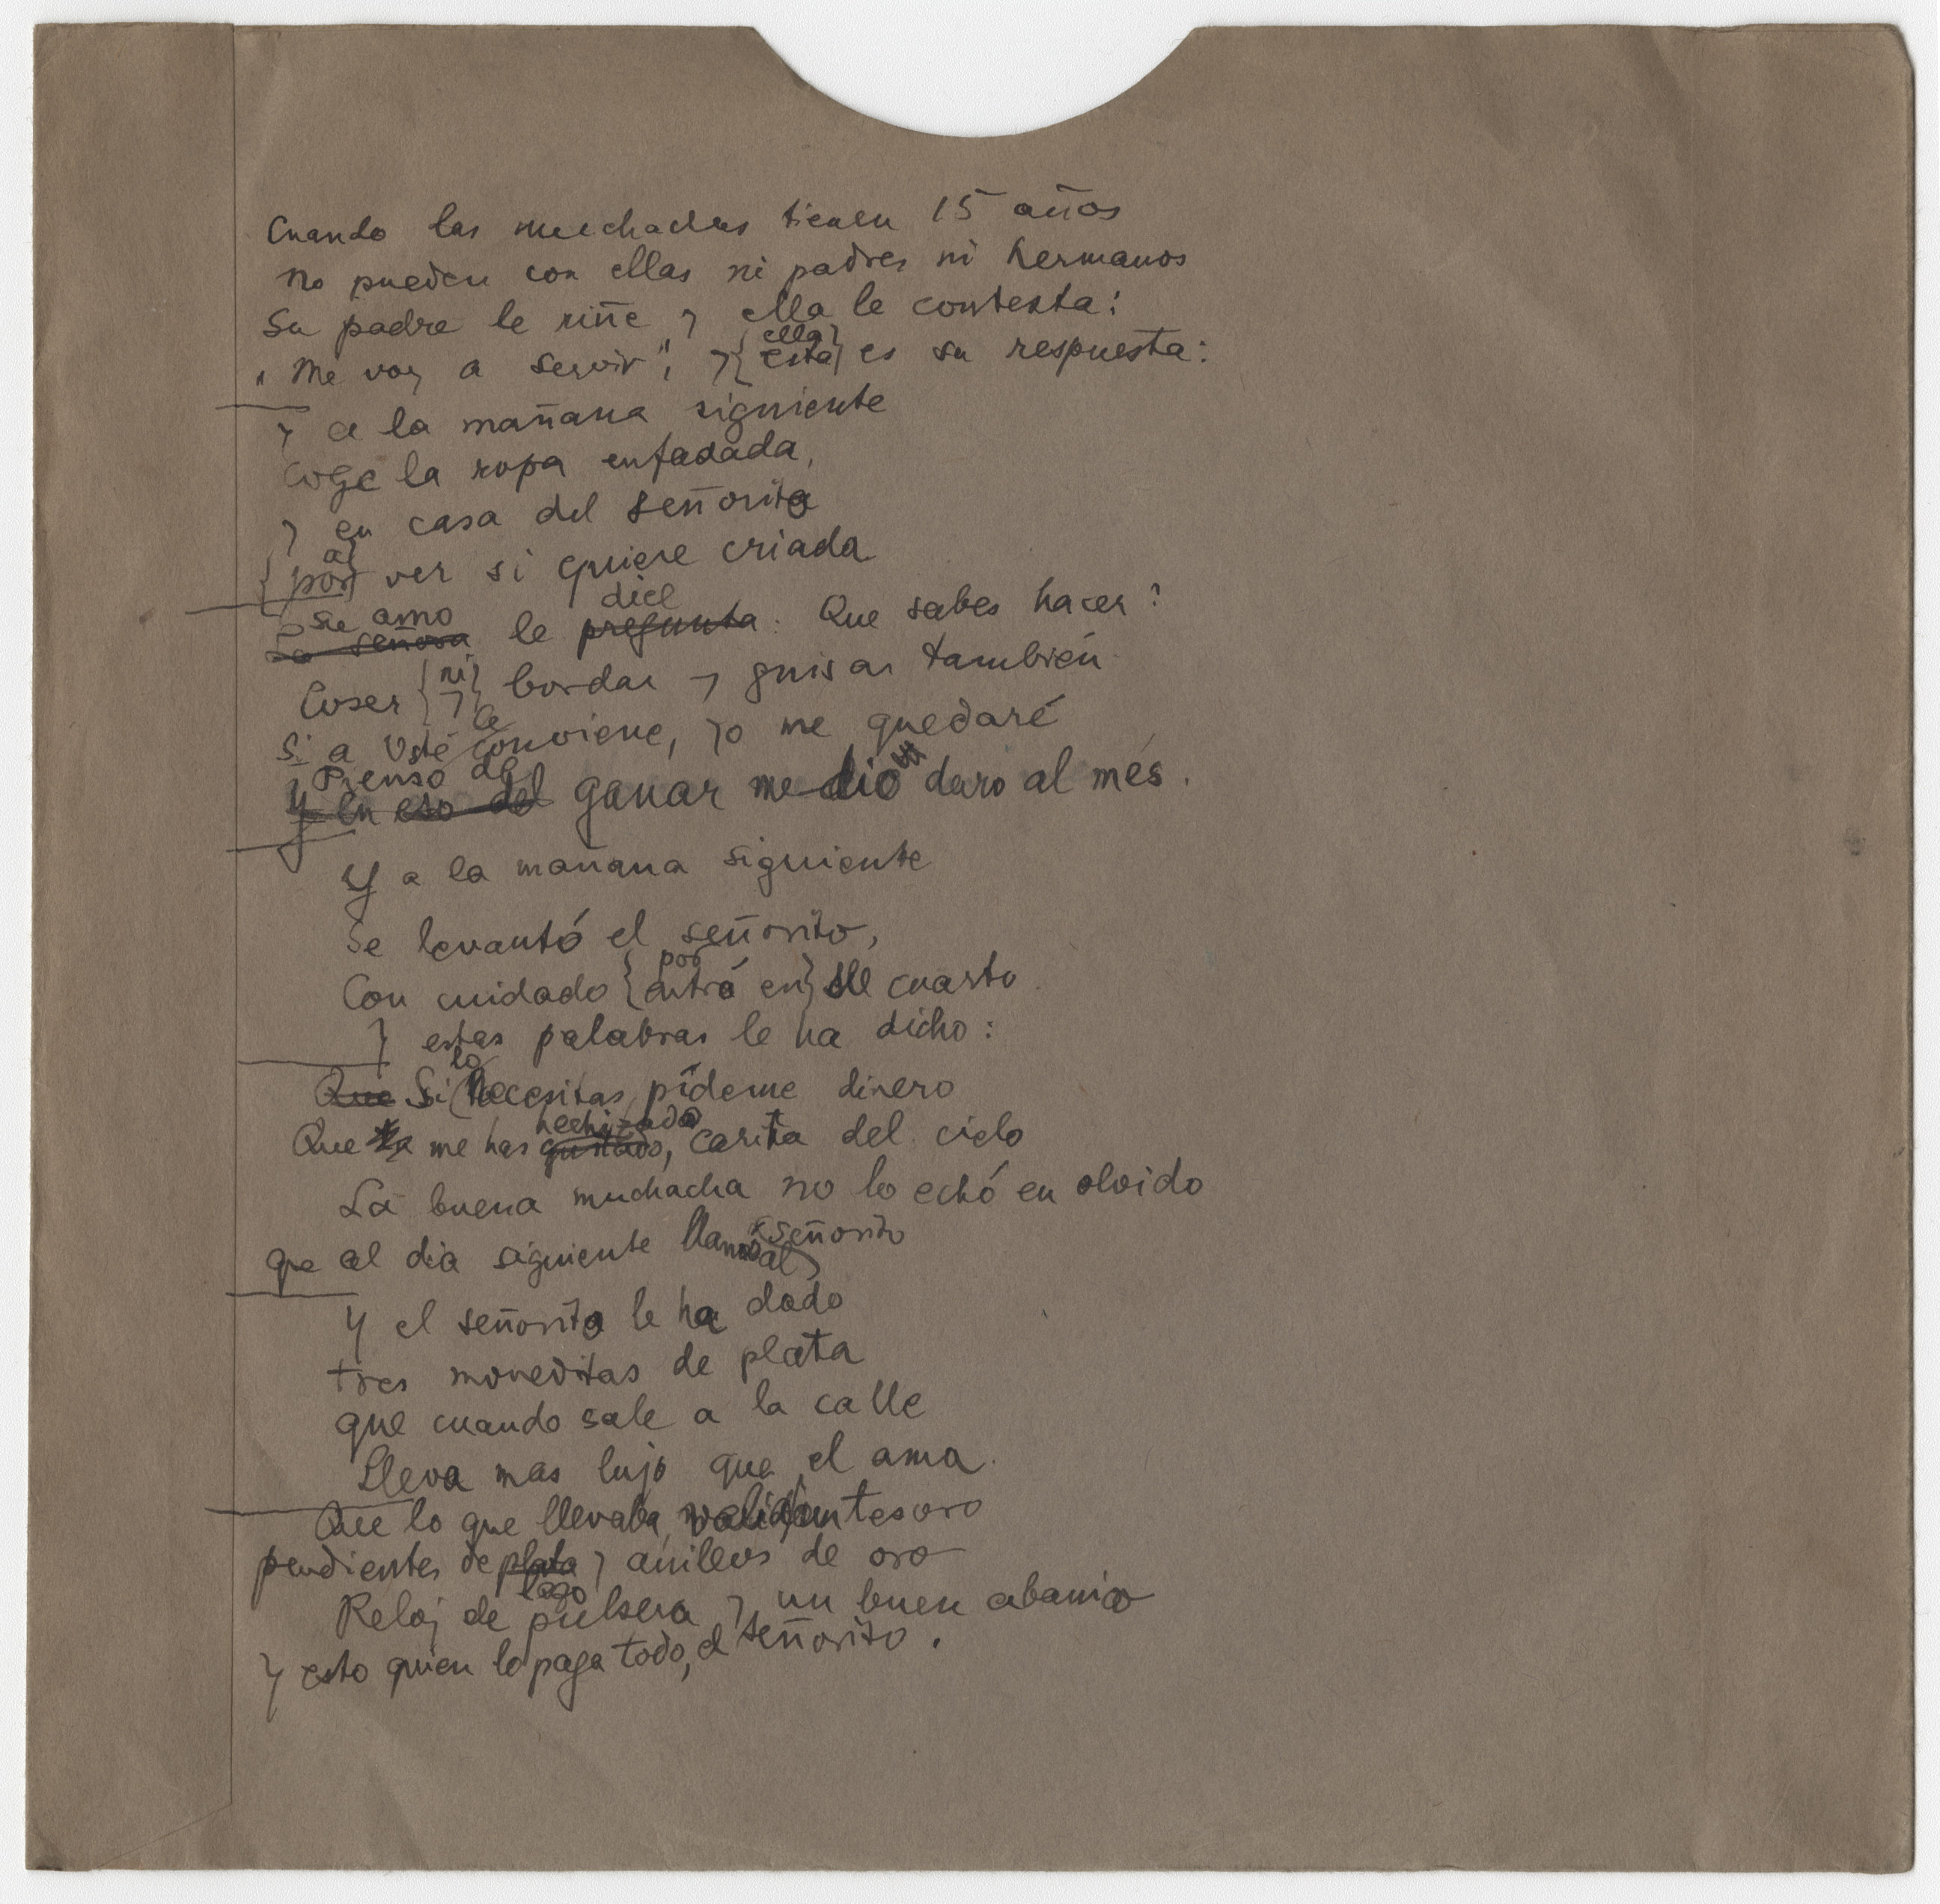 Cuando las muchachas tienen 15 años
No pueden con ellas ni padres ni hermanos
Su padre le riñe y ella le contesta:
ella
"Me voy a servir", y {esta} es su respuesta:
y a la mañana siguiente
Coge la ropa enfadada,
y en casa del señorito
a
{por} ver si quiere criada
Su amo dice
La señora le pregunta: Que sabes hacer?
ni
Coser {y} bordar y guisar también
le
Si a Usté conviene, yo me quedaré
Pienso de
Y en eso del ganar medio duro al més.
Y a la mañana siguiente
Se levantó el señorito,
por
Con cuidado {entró en} su cuarto
y estas palabras le ha dicho:
lo
Que Si necesitas, pídeme dinero
hechizado
Que me has gustado, carita del cielo
La buena muchacha no lo echó en olvido
señorito
que al dia siguiente llamó al
Y el señorito le ha dado
tres moneditas de plata
que cuando sale a la calle
Lleva mas lujo que el ama.
Que lo que llevaba, valia un tesoro
pendientes de plata y anillos de oro
lazo
Reloj de pulsera y un buen abanico
y esto quien lo paga todo, el señorito.